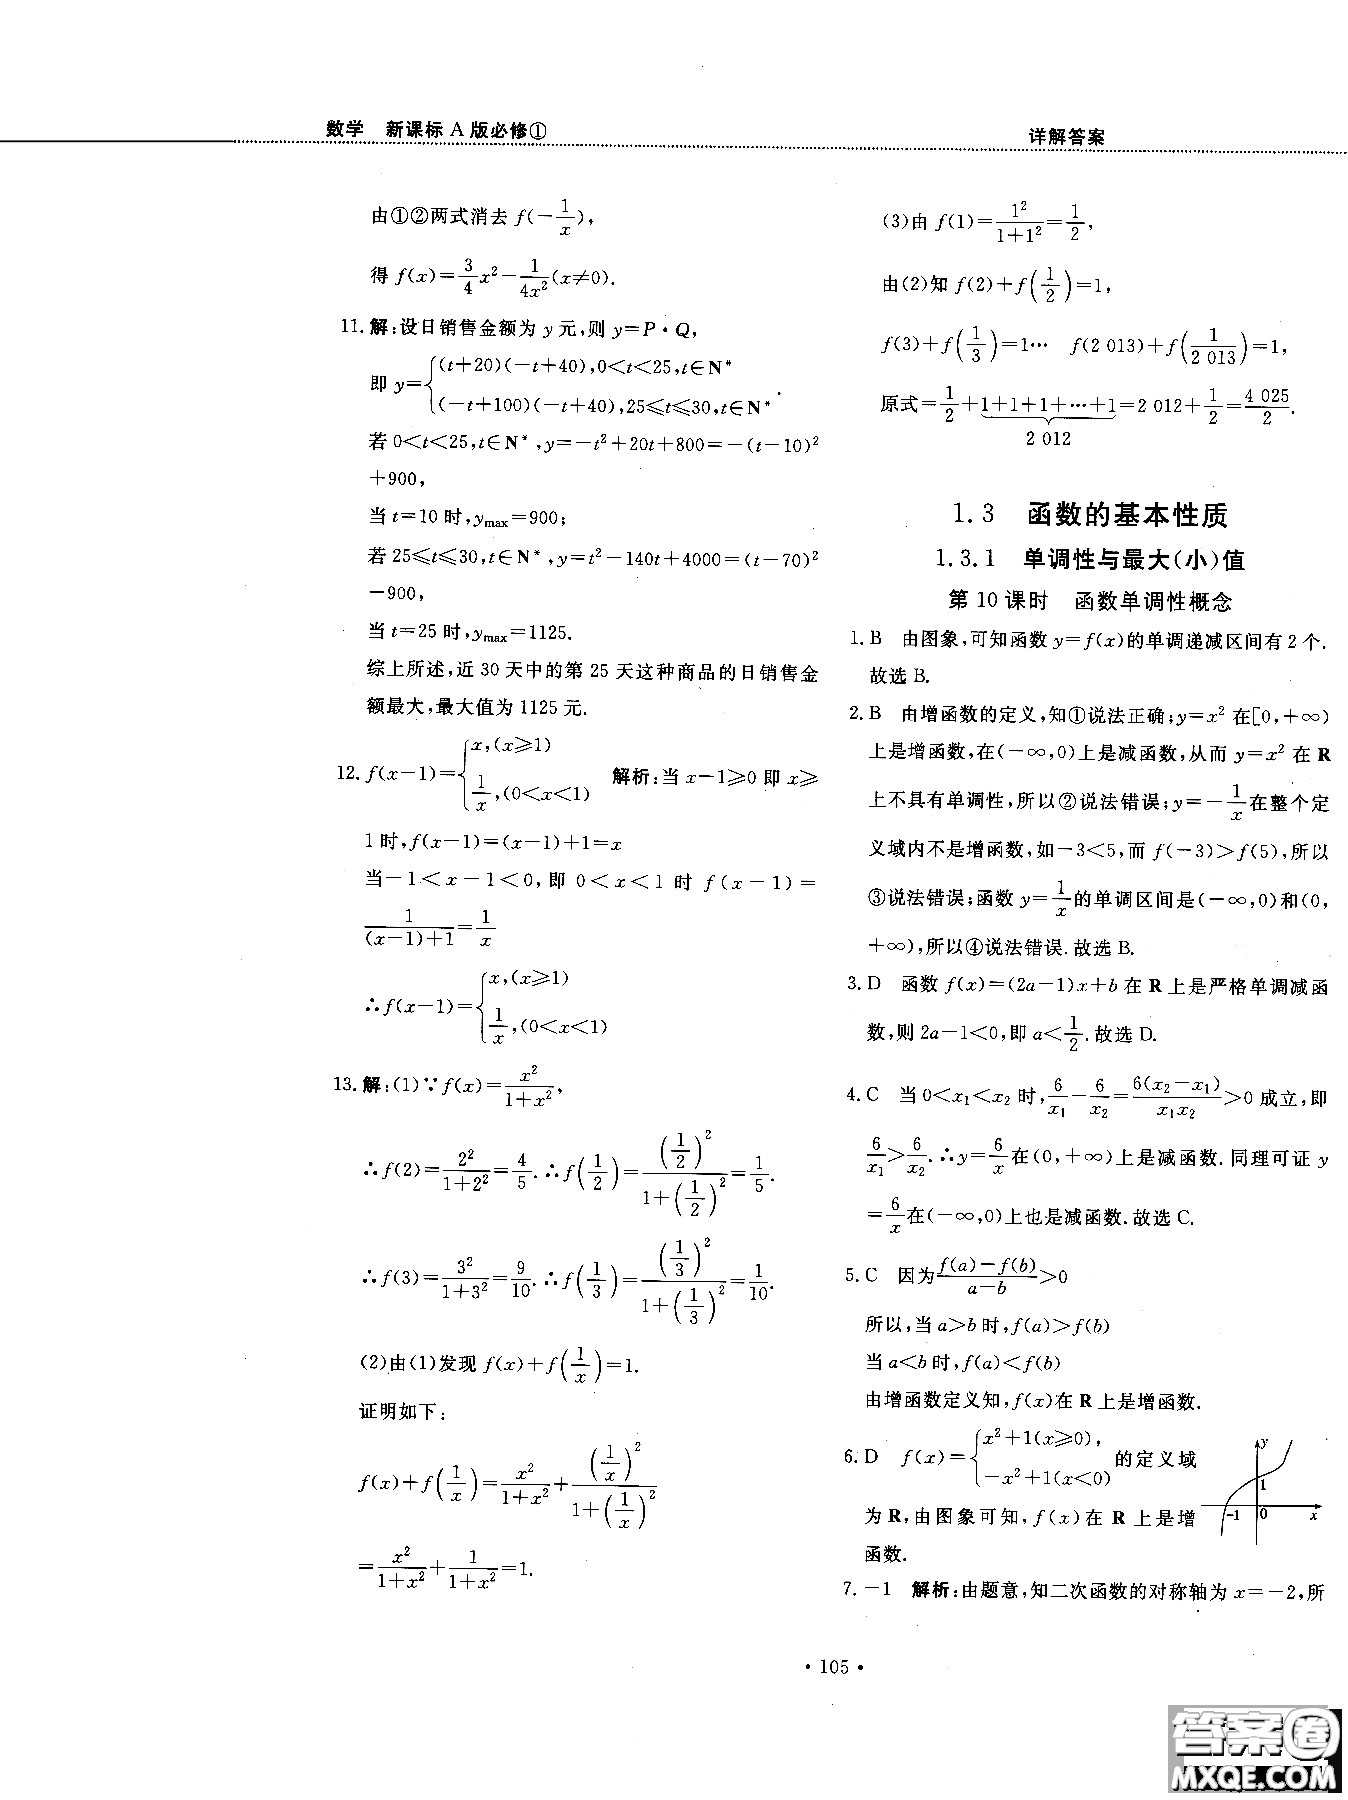 数学 新课标 A 版必修①
详解答案
由①②两式消去 f(-1/x),
得 f(x)=3/4 x²-1/(4x²)(x≠0).
11. 解:设日销售金额为 y 元,则 y=P·Q,
即 y={(t+20)(-t+40),0<t<25,t∈N*
(-t+100)(-t+40),25≤t≤30,t∈N*.
若 0<t<25,t∈N*,y=-t²+20t+800=-(t-10)²
+900,
当 t=10 时,ymax=900;
若 25≤t≤30,t∈N*,y=t²-140t+4000=(t-70)²
-900,
当 t=25 时,ymax=1125.
综上所述,近 30 天中的第 25 天这种商品的日销售金
额最大,最大值为 1125 元.
12. f(x-1)={x,(x≥1)
1/x,(0<x<1) 解析:当 x-1≥0 即 x≥
1 时,f(x-1)=(x-1)+1=x
当-1<x-1<0,即 0<x<1 时 f(x-1)=
1/((x-1)+1)=1/x
∴f(x-1)={x,(x≥1)
1/x,(0<x<1)
13. 解:(1)∵f(x)=x²/(1+x²),
∴f(2)=2²/(1+2²)=4/5.∴f(1/2)=(1/2)²/(1+(1/2)²)=1/5.
∴f(3)=3²/(1+3²)=9/10.∴f(1/3)=(1/3)²/(1+(1/3)²)=1/10.
(2)由(1)发现 f(x)+f(1/x)=1.
证明如下:
f(x)+f(1/x)=x²/(1+x²)+(1/x)²/(1+(1/x)²)
=x²/(1+x²)+1/(1+x²)=1.
(3)由 f(1)=1²/(1+1²)=1/2,
由(2)知 f(2)+f(1/2)=1,
f(3)+f(1/3)=1… f(2 013)+f(1/2 013)=1,
原式=1/2+1+1+1+…+1=2 012+1/2=4 025/2.
2 012
1.3 函数的基本性质
1.3.1 单调性与最大(小)值
第 10 课时 函数单调性概念
1. B 由图象,可知函数 y=f(x)的单调递减区间有 2 个.
故选 B.
2. B 由增函数的定义,知①说法正确;y=x² 在[0,+∞)
上是增函数,在(-∞,0)上是减函数,从而 y=x² 在 R
上不具有单调性,所以②说法错误;y=-1/x在整个定
义域内不是增函数,如-3<5,而 f(-3)>f(5),所以
③说法错误;函数 y=1/x的单调区间是(-∞,0)和(0,
+∞),所以④说法错误.故选 B.
3. D 函数 f(x)=(2a-1)x+b 在 R 上是严格单调减函
数,则 2a-1<0,即 a<1/2.故选 D.
4. C 当 0<x₁<x₂ 时,6/x₁-6/x₂=6(x₂-x₁)/x₁x₂>0 成立,即
6/x₁>6/x₂.∴y=6/x在(0,+∞)上是减函数.同理可证 y
=6/x在(-∞,0)上也是减函数.故选 C.
5. C 因为(f(a)-f(b))/(a-b)>0
所以,当 a>b 时,f(a)>f(b)
当 a<b 时,f(a)<f(b)
由增函数定义知,f(x)在 R 上是增函数.
6. D f(x)={x²+1(x≥0),
-x²+1(x<0) 的定义域
为 R,由图象可知,f(x)在 R 上是增
函数.
y
1
-1 0 x
7. -1 解析:由题意,知二次函数的对称轴为 x=-2,所
· 105 ·
答案圈
MXQE.COM